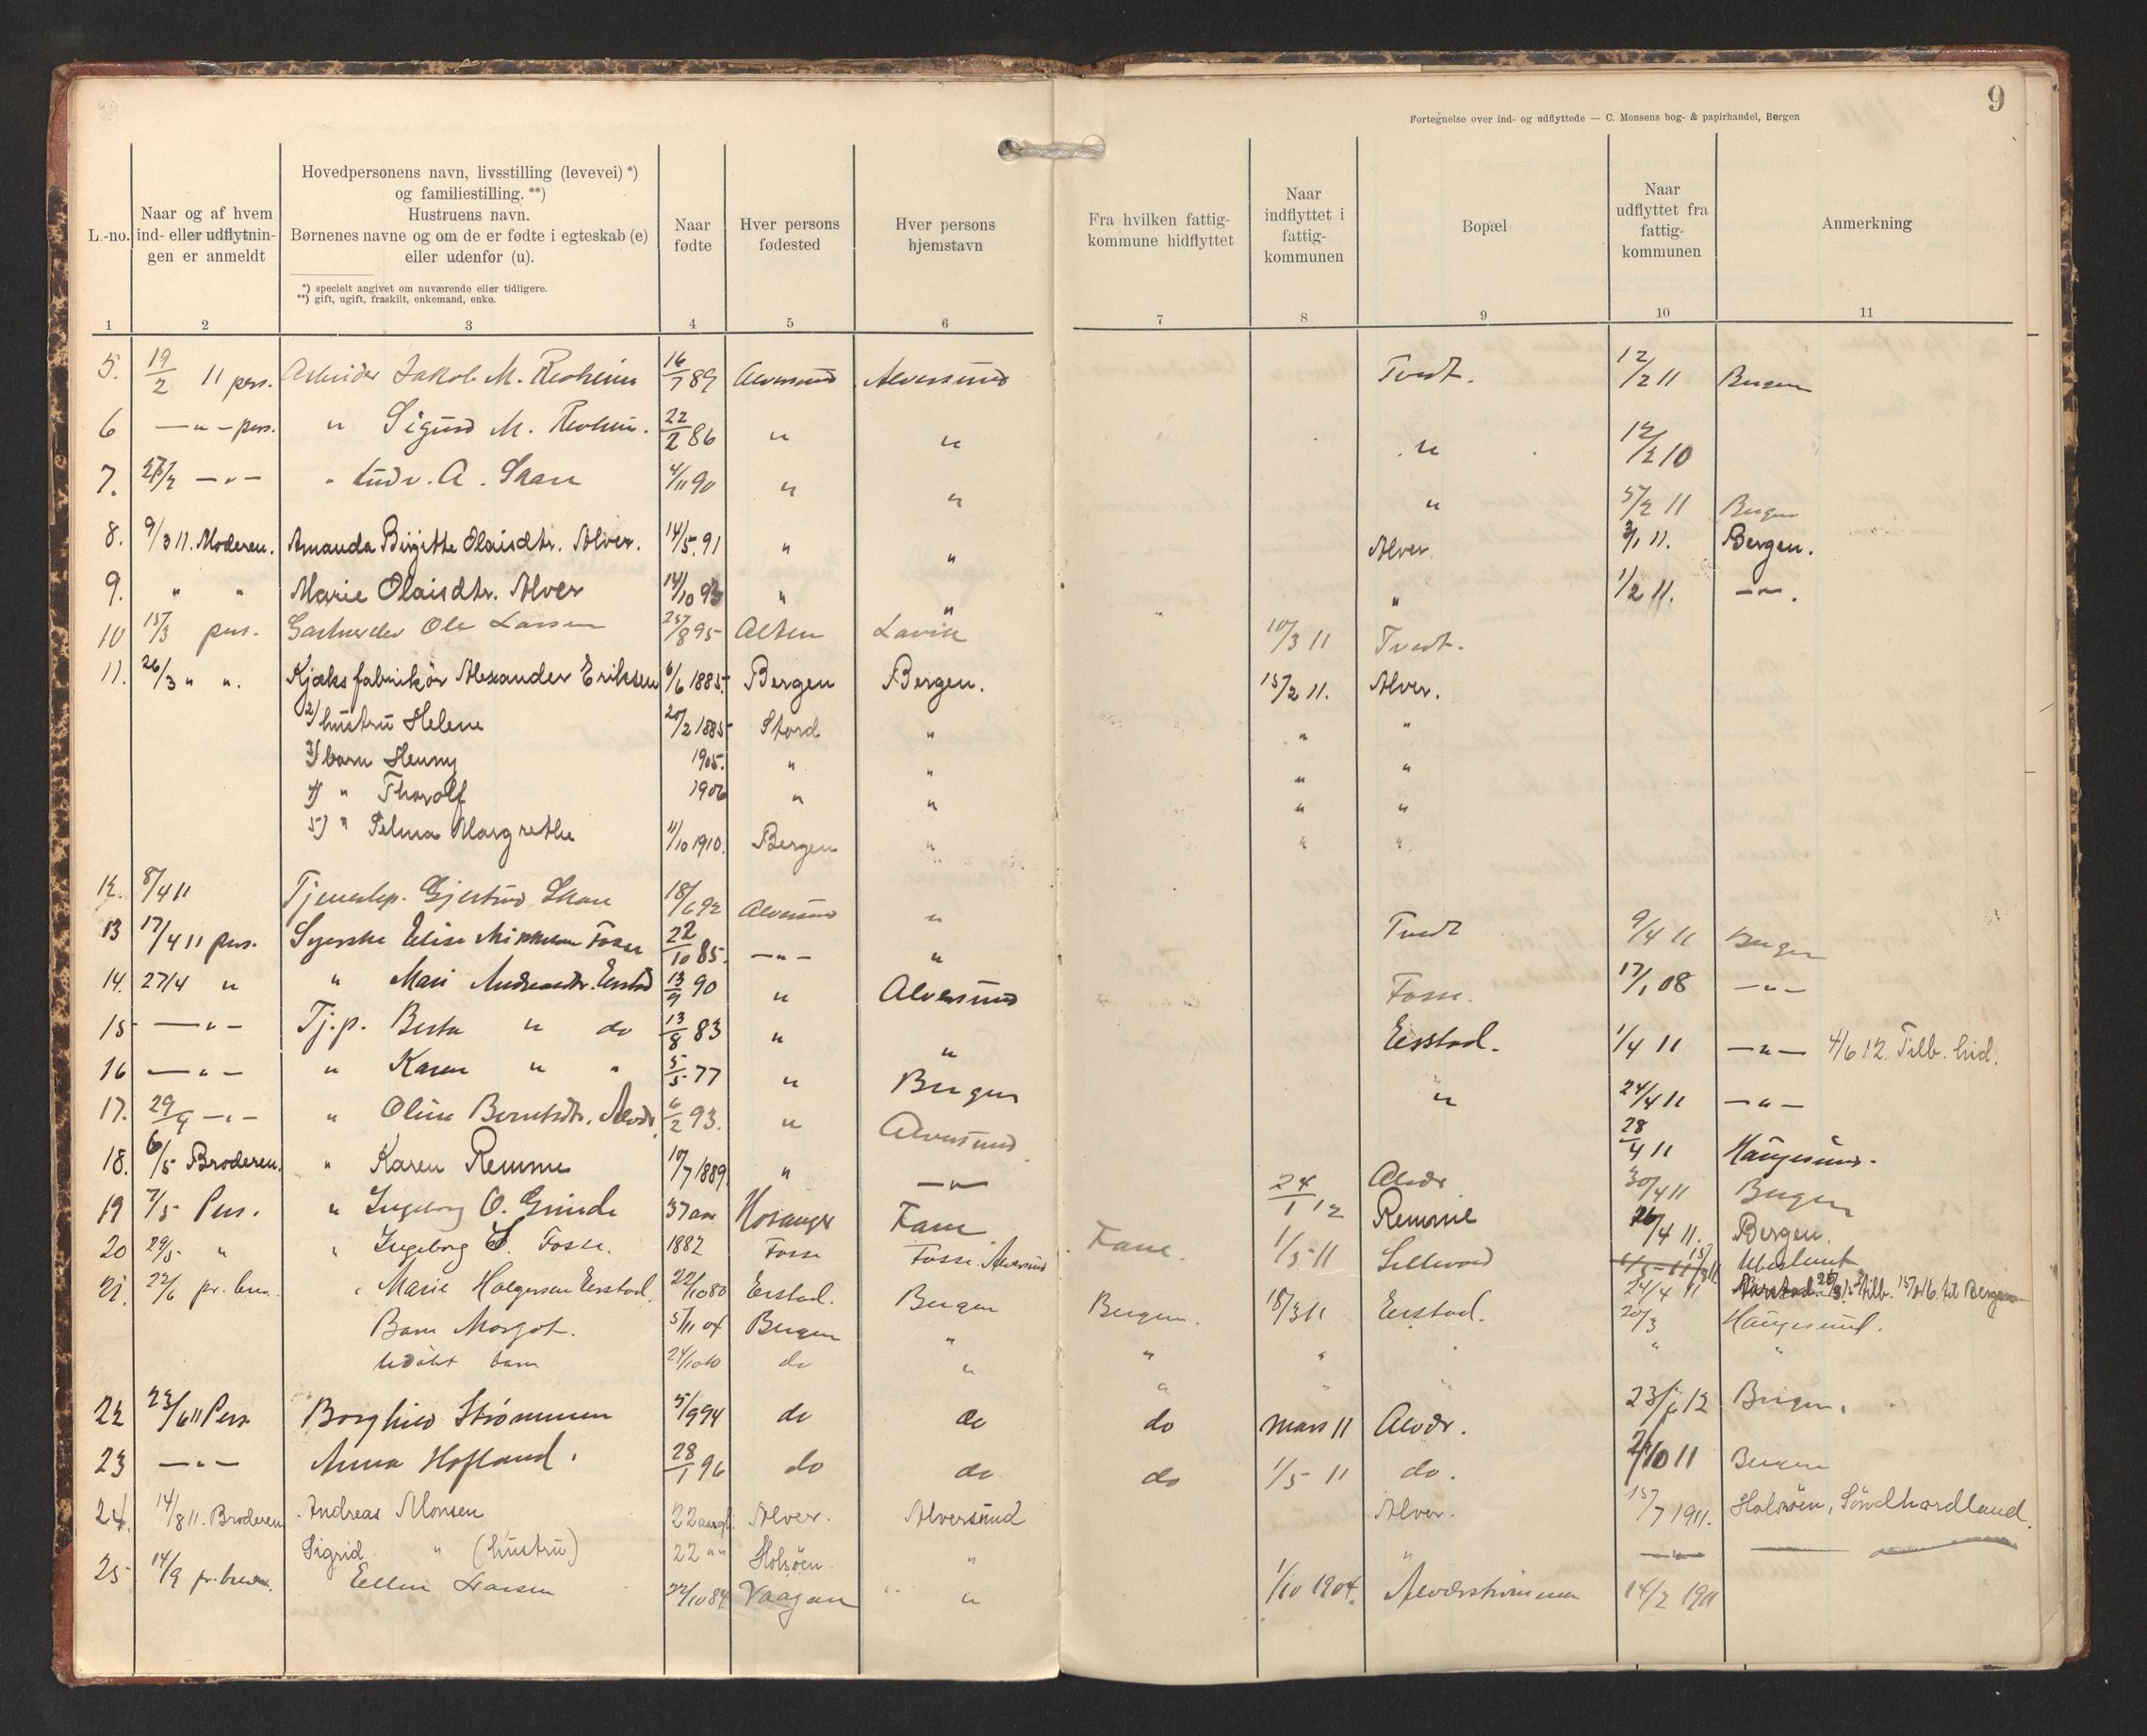 9
Fortegnelse over ind- og udflyttede — C. Monsens bog- & papirhandel, Bergen
L.-no.
Naar og af hvem ind- eller udflytnin-gen er anmeldt
Hovedpersonens navn, livsstilling (levevei) *)
og familiestilling. **)
Hustruens navn.
Børnenes navne og om de er fødte i egteskab (e)
eller udenfor (u).
*) specielt angivet om nuværende eller tidligere.
**) gift, ugift, fraskilt, enkemand, enke.
Naar fødte
Hver persons fødested
Hver persons hjemstavn
Fra hvilken fattig-kommune hidflyttet
Naar indflyttet i fattig-kommunen
Bopæl
Naar udflyttet fra fattig-kommunen
Anmerkning
1 2 3 4 5 6 7 8 9 10 11
5. 19/2 11 pers. Arbeider Jakob M. 16/7 89 Alversund Alversund Tvedt. 12/2 11 Bergen
6 — " — pers. " Sigurd M. 22/2 86 " " " 12/2 10
7. — " — " Ludv. A. Skare 4/11 90 " " " 5/2 11 Bergen
8. 9/3 11. Moderen. Amanda Birgitte Olaisdtr. Alver. 14/5. 91 " " Alver 3/1 11. Bergen.
9. " " Marie Olaisdtr. Alver 14/10 93 " " " 1/2 11. — " — .
10 15/3 pers. Ole Larsen 25/8 95 Lavik 10/3 11 Tvedt.
11. 26/3 " ". Kjæksfabrikør Alexander Eriksen 6/6 1885. Bergen Bergen. 15/2 11. Alver.
2) hustru Helene 20/2 1885 Stord " " "
3) barn Henny 1905. " " " "
4) " Thorolf 1906 " " " "
5) " Selma Margrethe 11/10 1910. Bergen " " "
12. 8/4 11 Tjenestep. Gjertrud Skare 18/6 92 Alversund " Tvedt 9/4 11 Bergen
13 17/4 11 pers. Syerske Elise Mikkelsen Fosse 22/10 85. — " — " Fosse. 17/1 08 — " —
14. 27/4 " " Mari Andreasdtr. Eisstad 13/9 90 " Alversund Eisstad. 1/4 11 — " — 4/6 12. Tilb. hid.
15 — " — Tj.p. Berta " do 13/8 83 " " " 24/4 11 — " —
16 — " — " Karen " " 5/5 77 " Bergen 28/4 11 Haugesund.
17. 29/4 — " — " Oline Berntsdtr. Alvær 6/2 93. " Alversund 24/1 12 Alvær 30/4 11 Bergen
18. 6/5 Broderen. " Karen Remme 10/7 1889. " — " — Remme 26/4 11. Bergen.
19 7/5 Pers. " Ingeborg O. Grinde 37 aar Hosanger Fane Fane. 1/5 11 Ubestemt
20 29/5 " " Ingeborg S. Fosse. 1882 Fosse Fosse. Alversund 24/4 11 tilb. til Bergen
21. 22/6 pr. brev. " Marie Holgersen Eisstad. 22/10 80 Eisstad. Bergen Bergen. 18/3 11 Eisstad. 20/3 Haugesund.
Barn Margot. 5/11 04 Bergen " " " " " "
Udøbt barn 24/10 10 do " " " "
22 23/6 11 Pers Borghild Strømmen 5/9 94 do do do mars 11 Alvær. 23/6 12 Bergen.
23 — " — Anna Hofland. 28/1 96 do do do 1/5 11 do. 2/10 11 Bergen
24. 14/8 11. Broderen Andreas Monsen 22 aar gl. Alver. Alversund Alver. 15/7 1911. Holsøen, Søndhordland.
Sigrid " (hustru) 22 " " Holsøen. " " — " —
25 14/9 pr. brev. Ellen Larsen 22/10 84 Vaagan " 1/10 1904. Alværstrømmen 14/2 1911